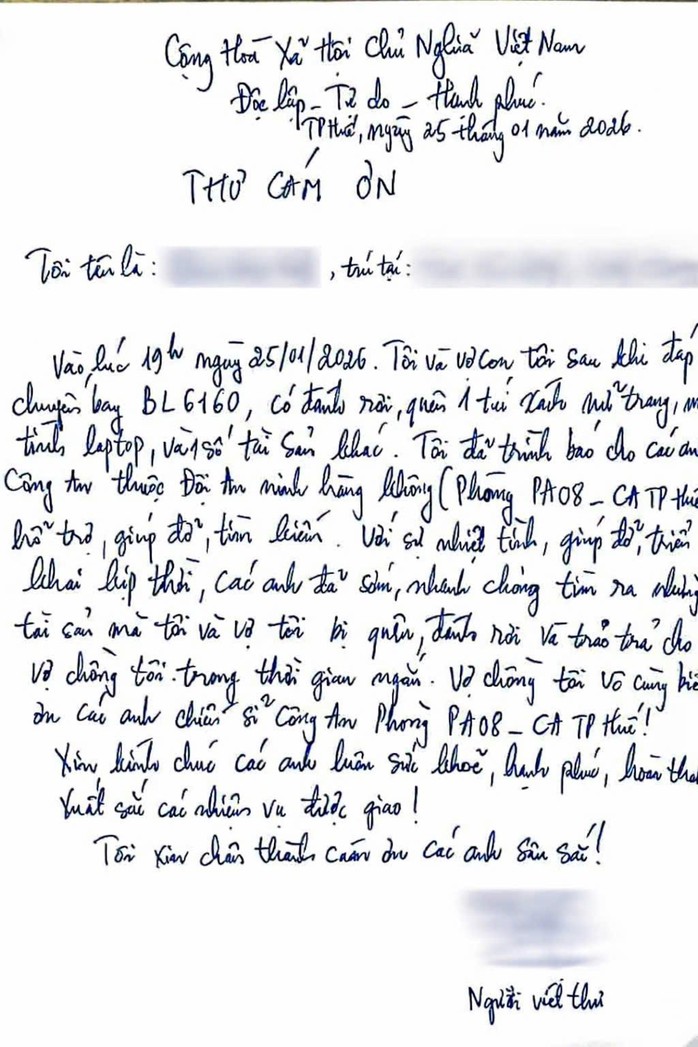 Cộng Hoà Xã Hội Chủ Nghĩa Việt Nam
Độc lập - Tự do - Hạnh phúc.
TP Huế, ngày 25 tháng 01 năm 2026.
THƯ CẢM ƠN
Tôi tên là : , trú tại :
Vào lúc 19h ngày 25/01/2026. Tôi và vợ con tôi sau khi đáp
chuyến bay BL6160, có đánh rơi, quên 1 túi xách nữ trang, m
tính laptop, và 1 số tài sản khác. Tôi đã trình báo cho các an
Công An thuộc Đội An ninh hàng không (Phòng PA08 - CA TP Huế
hỗ trợ, giúp đỡ, tìm kiếm. Với sự nhiệt tình, giúp đỡ, triển
khai kịp thời, các anh đã sớm, nhanh chóng tìm ra những
tài sản mà tôi và vợ tôi bị quên, đánh rơi và trao trả cho
vợ chồng tôi trong thời gian ngắn. Vợ chồng tôi vô cùng biế
ơn các anh chiến sĩ Công An Phòng PA08 - CA TP Huế!
Xin kính chúc các anh luôn sức khoẻ, hạnh phúc, hoàn thà
xuất sắc các nhiệm vụ được giao!
Tôi xin chân thành cảm ơn các anh sâu sắc!
Người viết thư